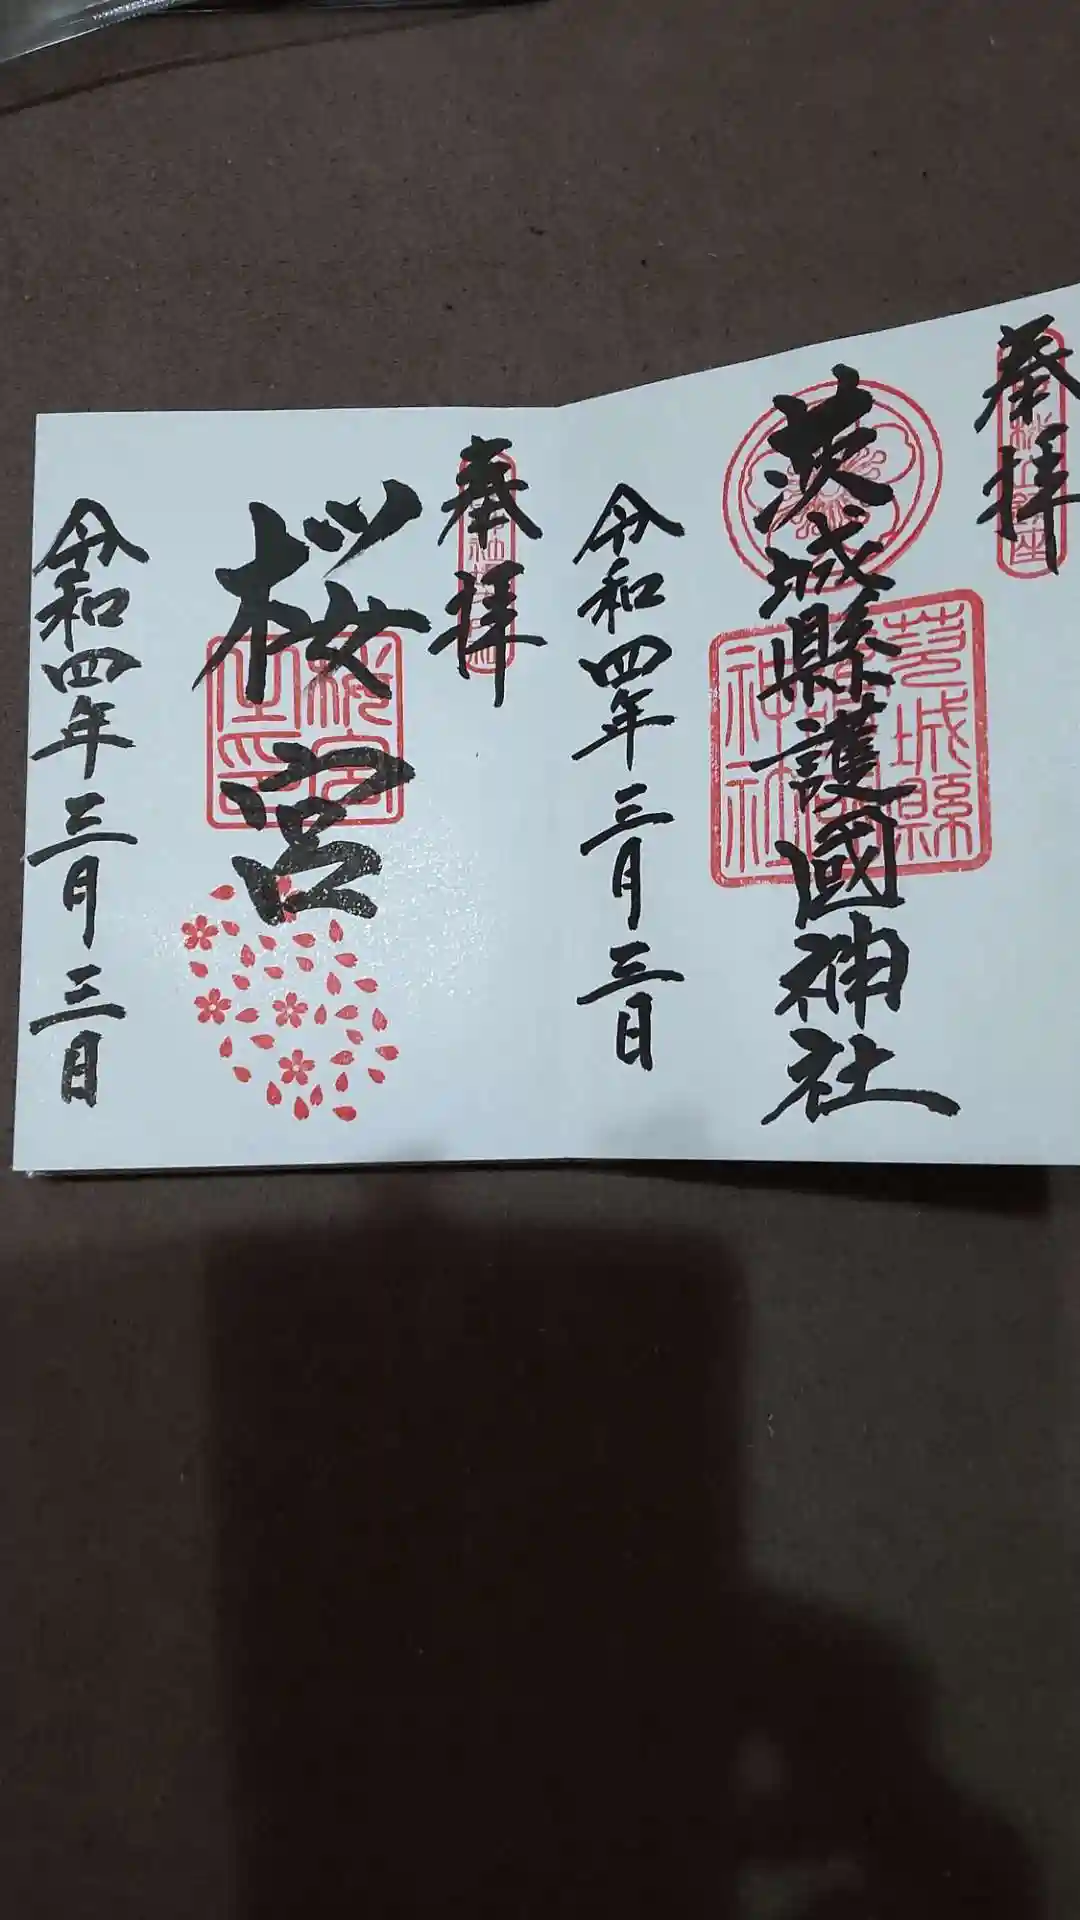 奉拝
茨城縣護國神社
茨城縣
神社
令和四年三月三日
奉拝
桜宮
令和四年三月三日